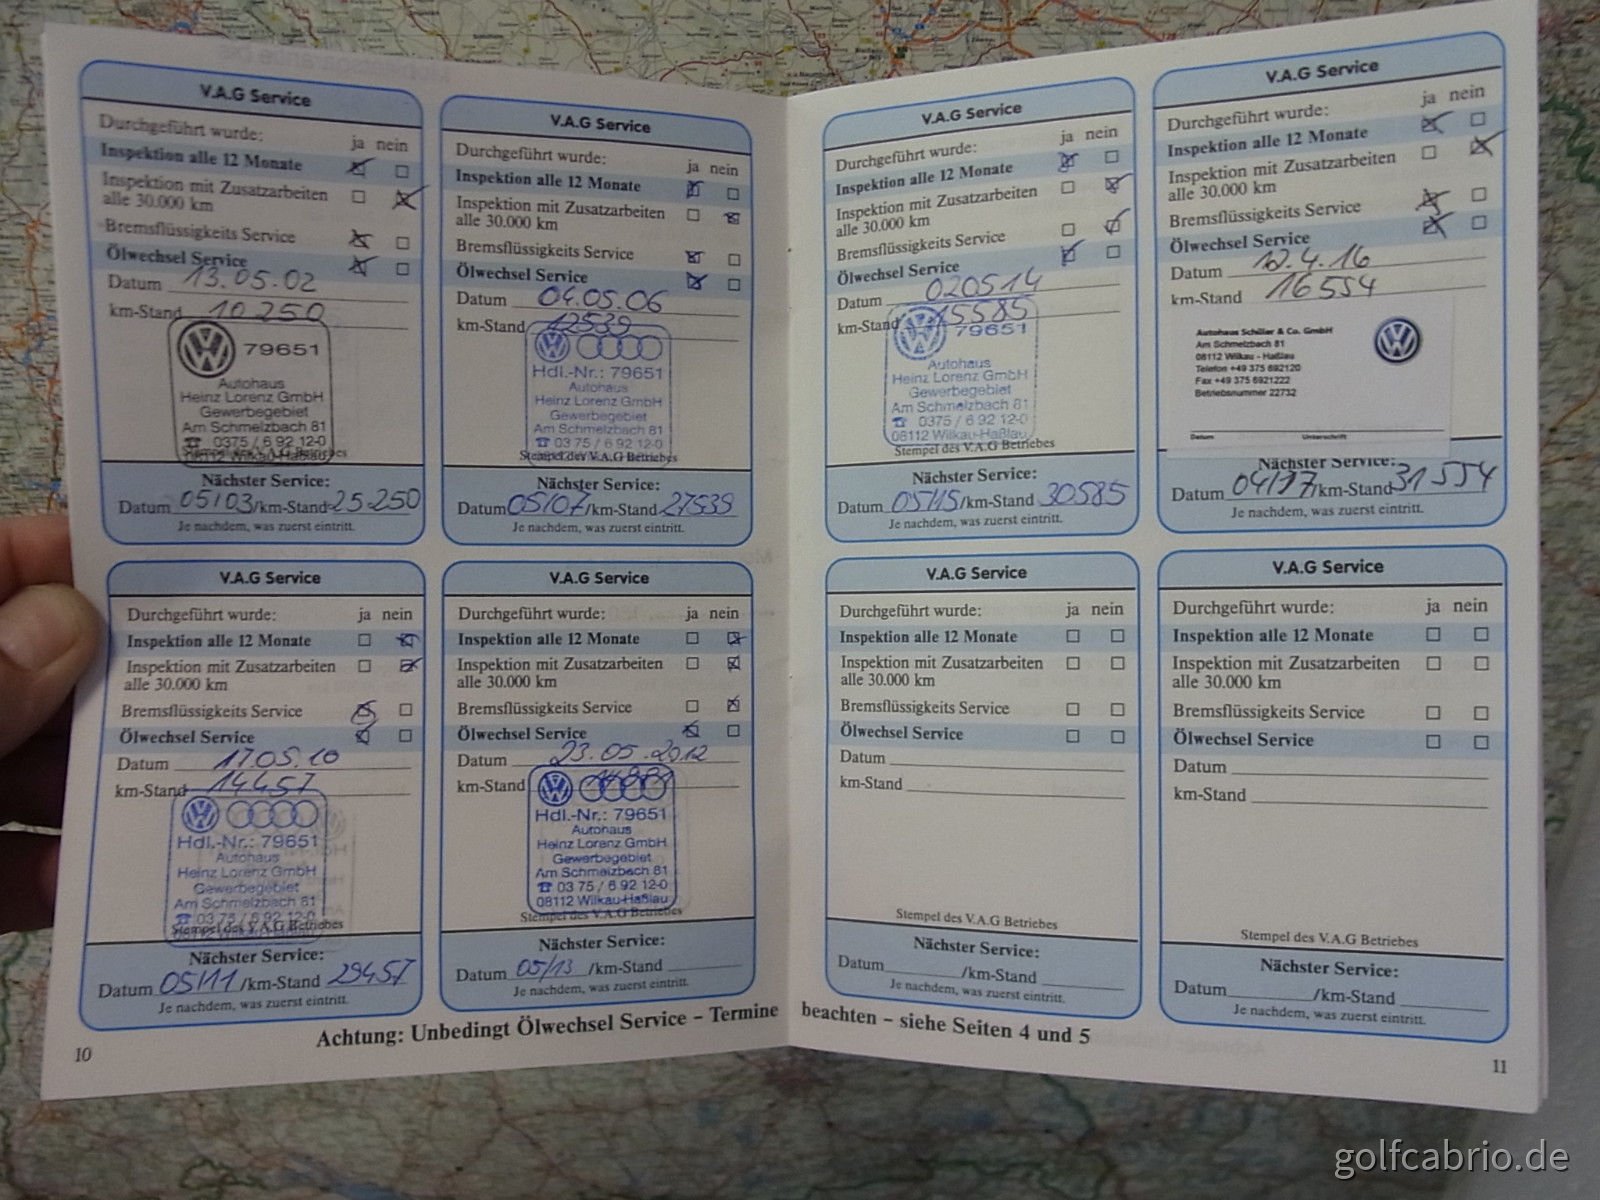 V.A.G Service
Durchgeführt wurde:
ja nein
Inspektion alle 12 Monate
Inspektion mit Zusatzarbeiten
alle 30.000 km
Bremsflüssigkeits Service
Ölwechsel Service
Datum 13.05.02
km-Stand 10250
79651
Autohaus
Heinz Lorenz GmbH
Gewerbegebiet
Am Schmelzbach 81
☎ 0375 / 6 92 12-0
08112 Wilkau-Haßlau
Stempel des V.A.G Betriebes
Nächster Service:
Datum 05/03/km-Stand 25250
Je nachdem, was zuerst eintritt.
V.A.G Service
Durchgeführt wurde:
ja nein
Inspektion alle 12 Monate
Inspektion mit Zusatzarbeiten
alle 30.000 km
Bremsflüssigkeits Service
Ölwechsel Service
Datum 04.05.06
km-Stand 12539
Hdl.-Nr.: 79651
Autohaus
Heinz Lorenz GmbH
Gewerbegebiet
Am Schmelzbach 81
☎ 03 75 / 6 92 12-0
08112 Wilkau-Haßlau
Stempel des V.A.G Betriebes
Nächster Service:
Datum 05/07/km-Stand 27539
Je nachdem, was zuerst eintritt.
V.A.G Service
Durchgeführt wurde:
ja nein
Inspektion alle 12 Monate
Inspektion mit Zusatzarbeiten
alle 30.000 km
Bremsflüssigkeits Service
Ölwechsel Service
Datum 17.05.10
km-Stand 14457
Hdl.-Nr.: 79651
Autohaus
Heinz Lorenz GmbH
Gewerbegebiet
Am Schmelzbach 81
☎ 03 75 / 6 92 12-0
Stempel des V.A.G Betriebes
Nächster Service:
Datum 05/11/km-Stand 29457
Je nachdem, was zuerst eintritt.
V.A.G Service
Durchgeführt wurde:
ja nein
Inspektion alle 12 Monate
Inspektion mit Zusatzarbeiten
alle 30.000 km
Bremsflüssigkeits Service
Ölwechsel Service
Datum 23.05.2012
km-Stand
Hdl.-Nr.: 79651
Autohaus
Heinz Lorenz GmbH
Gewerbegebiet
Am Schmelzbach 81
☎ 03 75 / 6 92 12-0
08112 Wilkau-Haßlau
Stempel des V.A.G Betriebes
Nächster Service:
Datum 05/13 /km-Stand
Je nachdem, was zuerst eintritt.
Achtung: Unbedingt Ölwechsel Service – Termine
10
V.A.G Service
Durchgeführt wurde:
ja nein
Inspektion alle 12 Monate
Inspektion mit Zusatzarbeiten
alle 30.000 km
Bremsflüssigkeits Service
Ölwechsel Service
Datum 020514
km-Stand 15585
79651
Autohaus
Heinz Lorenz GmbH
Gewerbegebiet
Am Schmelzbach 81
☎ 0375 / 6 92 12-0
08112 Wilkau-Haßlau
Stempel des V.A.G Betriebes
Nächster Service:
Datum 05/15/km-Stand 30585
Je nachdem, was zuerst eintritt.
V.A.G Service
Durchgeführt wurde:
ja nein
Inspektion alle 12 Monate
Inspektion mit Zusatzarbeiten
alle 30.000 km
Bremsflüssigkeits Service
Ölwechsel Service
Datum
km-Stand 16554
Autohaus Schiller & Co. GmbH
Am Schmelzbach 81
08112 Wilkau - Haßlau
Telefon +49 375 692120
Fax +49 375 6921222
Betriebsnummer 22732
Datum Unterschrift
Nächster Service:
Datum 04/17/km-Stand 31554
Je nachdem, was zuerst eintritt.
V.A.G Service
Durchgeführt wurde:
ja nein
Inspektion alle 12 Monate
Inspektion mit Zusatzarbeiten
alle 30.000 km
Bremsflüssigkeits Service
Ölwechsel Service
Datum
km-Stand
Stempel des V.A.G Betriebes
Nächster Service:
Datum /km-Stand
Je nachdem, was zuerst eintritt.
V.A.G Service
Durchgeführt wurde:
ja nein
Inspektion alle 12 Monate
Inspektion mit Zusatzarbeiten
alle 30.000 km
Bremsflüssigkeits Service
Ölwechsel Service
Datum
km-Stand
Stempel des V.A.G Betriebes
Nächster Service:
Datum /km-Stand
Je nachdem, was zuerst eintritt.
beachten – siehe Seiten 4 und 5
11
golfcabrio.de